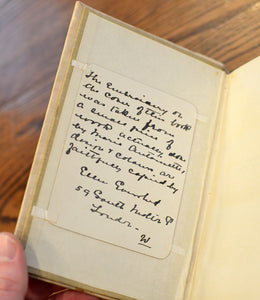 The Embroidery on
the cover of this book
was taken from
a small piece of
work actually done
by Marie Antoinette,
design & colours are
faithfully copied by
Ellen
59 South Molton St
London.
W